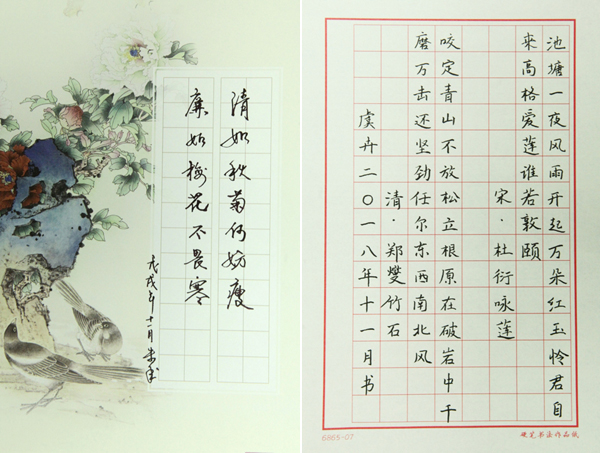 清如秋菊何妨瘦
廉如梅花不畏寒
戊戌年十一月
池塘一夜风雨开起万朵红玉怜君自
来高格爱莲谁若敦颐
宋·杜衍咏莲
咬定青山不放松立根原在破岩中千
磨万击还坚劲任尔东西南北风
清·郑燮竹石
虞卉二〇一八年十一月书
6865-07
硬笔书法作品纸